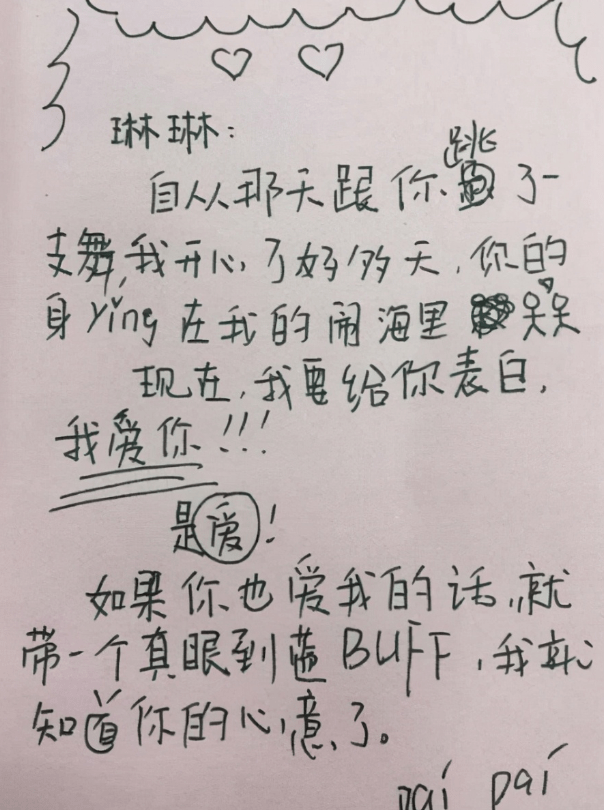 琳琳:
自从那天跟你跳了一
支舞,我开心了好多天,你的
身ying在我的闹海里
现在,我要给你表白,
我爱你!!!
是爱!
如果你也爱我的话,就
带一个真眼到蓝BUFF,我就
知道你的心意了。
pai pai